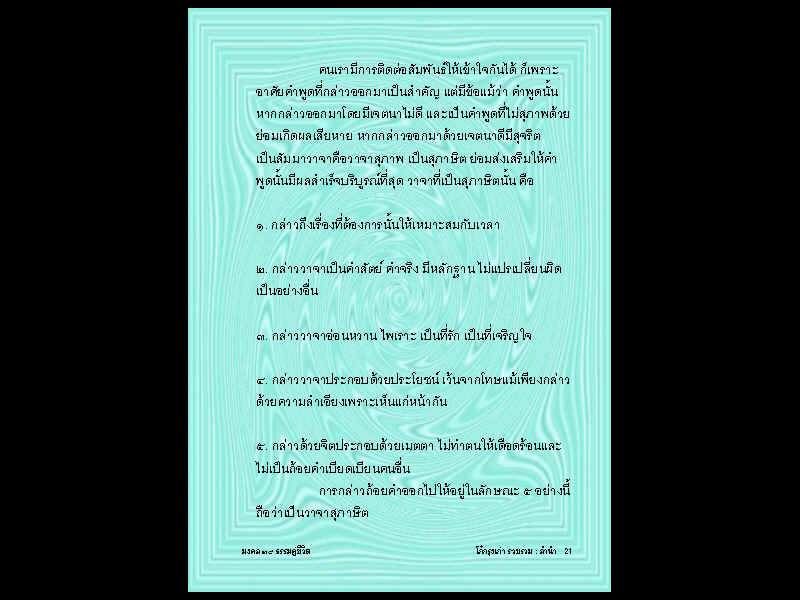 คนเรามีการติดต่อสัมพันธ์ให้เข้าใจกันได้ ก็เพราะ
อาศัยคำพูดที่กล่าวออกมาเป็นสำคัญ แต่มีข้อแม้ว่า คำพูดนั้น
หากกล่าวออกมาโดยมีเจตนาไม่ดี และเป็นคำพูดที่ไม่สุภาพด้วย
ย่อมเกิดผลเสียหาย หากกล่าวออกมาด้วยเจตนาดีมีสุจริต
เป็นสัมมาวาจาคือวาจาสุภาพ เป็นสุภาษิต ย่อมส่งเสริมให้คำ
พูดนั้นมีผลสำเร็จบริบูรณ์ที่สุด วาจาที่เป็นสุภาษิตนั้น คือ
๑. กล่าวถึงเรื่องที่ต้องการนั้นให้เหมาะสมกับเวลา
๒. กล่าววาจาเป็นคำสัตย์ คำจริง มีหลักฐาน ไม่แปรเปลี่ยนผิด
เป็นอย่างอื่น
๓. กล่าววาจาอ่อนหวาน ไพเราะ เป็นที่รัก เป็นที่เจริญใจ
๔. กล่าววาจาประกอบด้วยประโยชน์ เว้นจากโทษแม้เพียงกล่าว
ด้วยความลำเอียงเพราะเห็นแก่หน้ากัน
๕. กล่าวด้วยจิตประกอบด้วยเมตตา ไม่ทำตนให้เดือดร้อนและ
ไม่เป็นถ้อยคำเบียดเบียนคนอื่น
การกล่าวถ้อยคำออกไปให้อยู่ในลักษณะ ๕ อย่างนี้
ถือว่าเป็นวาจาสุภาษิต
มงคล ๓๘ ธรรมคู่ชีวิต
โก๋กรุงเก่า รวบรวม : ลำนำ 21